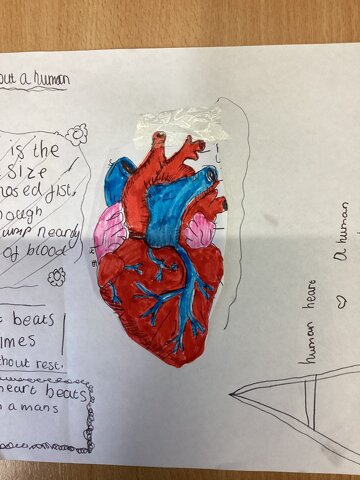 out a human
is the
size
osed fist,
hough
ump nearly
of blood
t beats
imes
ithout rest.
heart beats
n a mans
human heart
A human